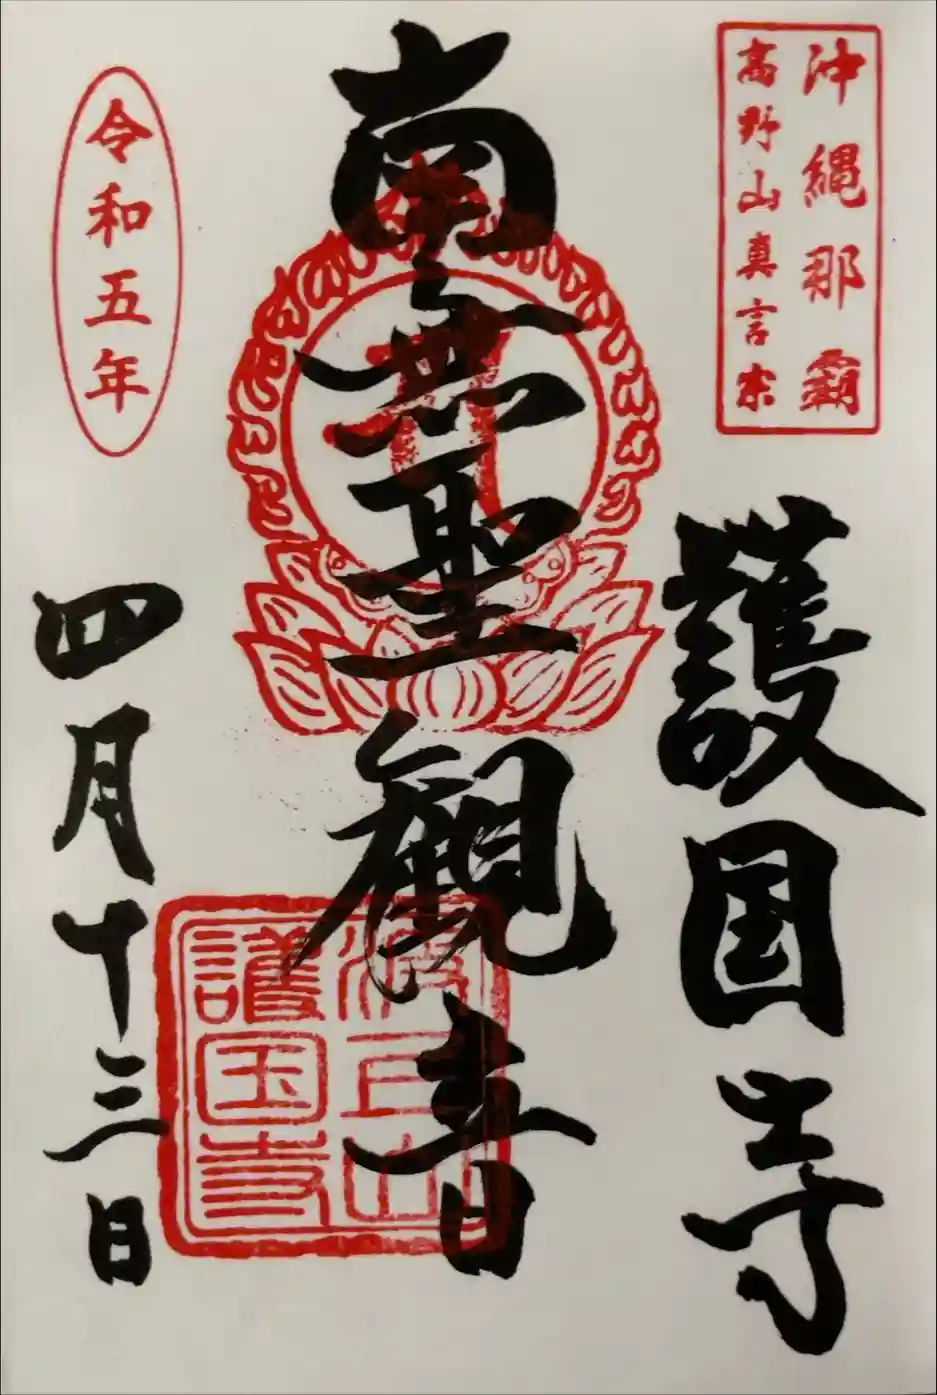 沖縄那覇
高野山真言宗
護国寺
南無聖観音
波上山
護国寺
令和五年
四月十三日